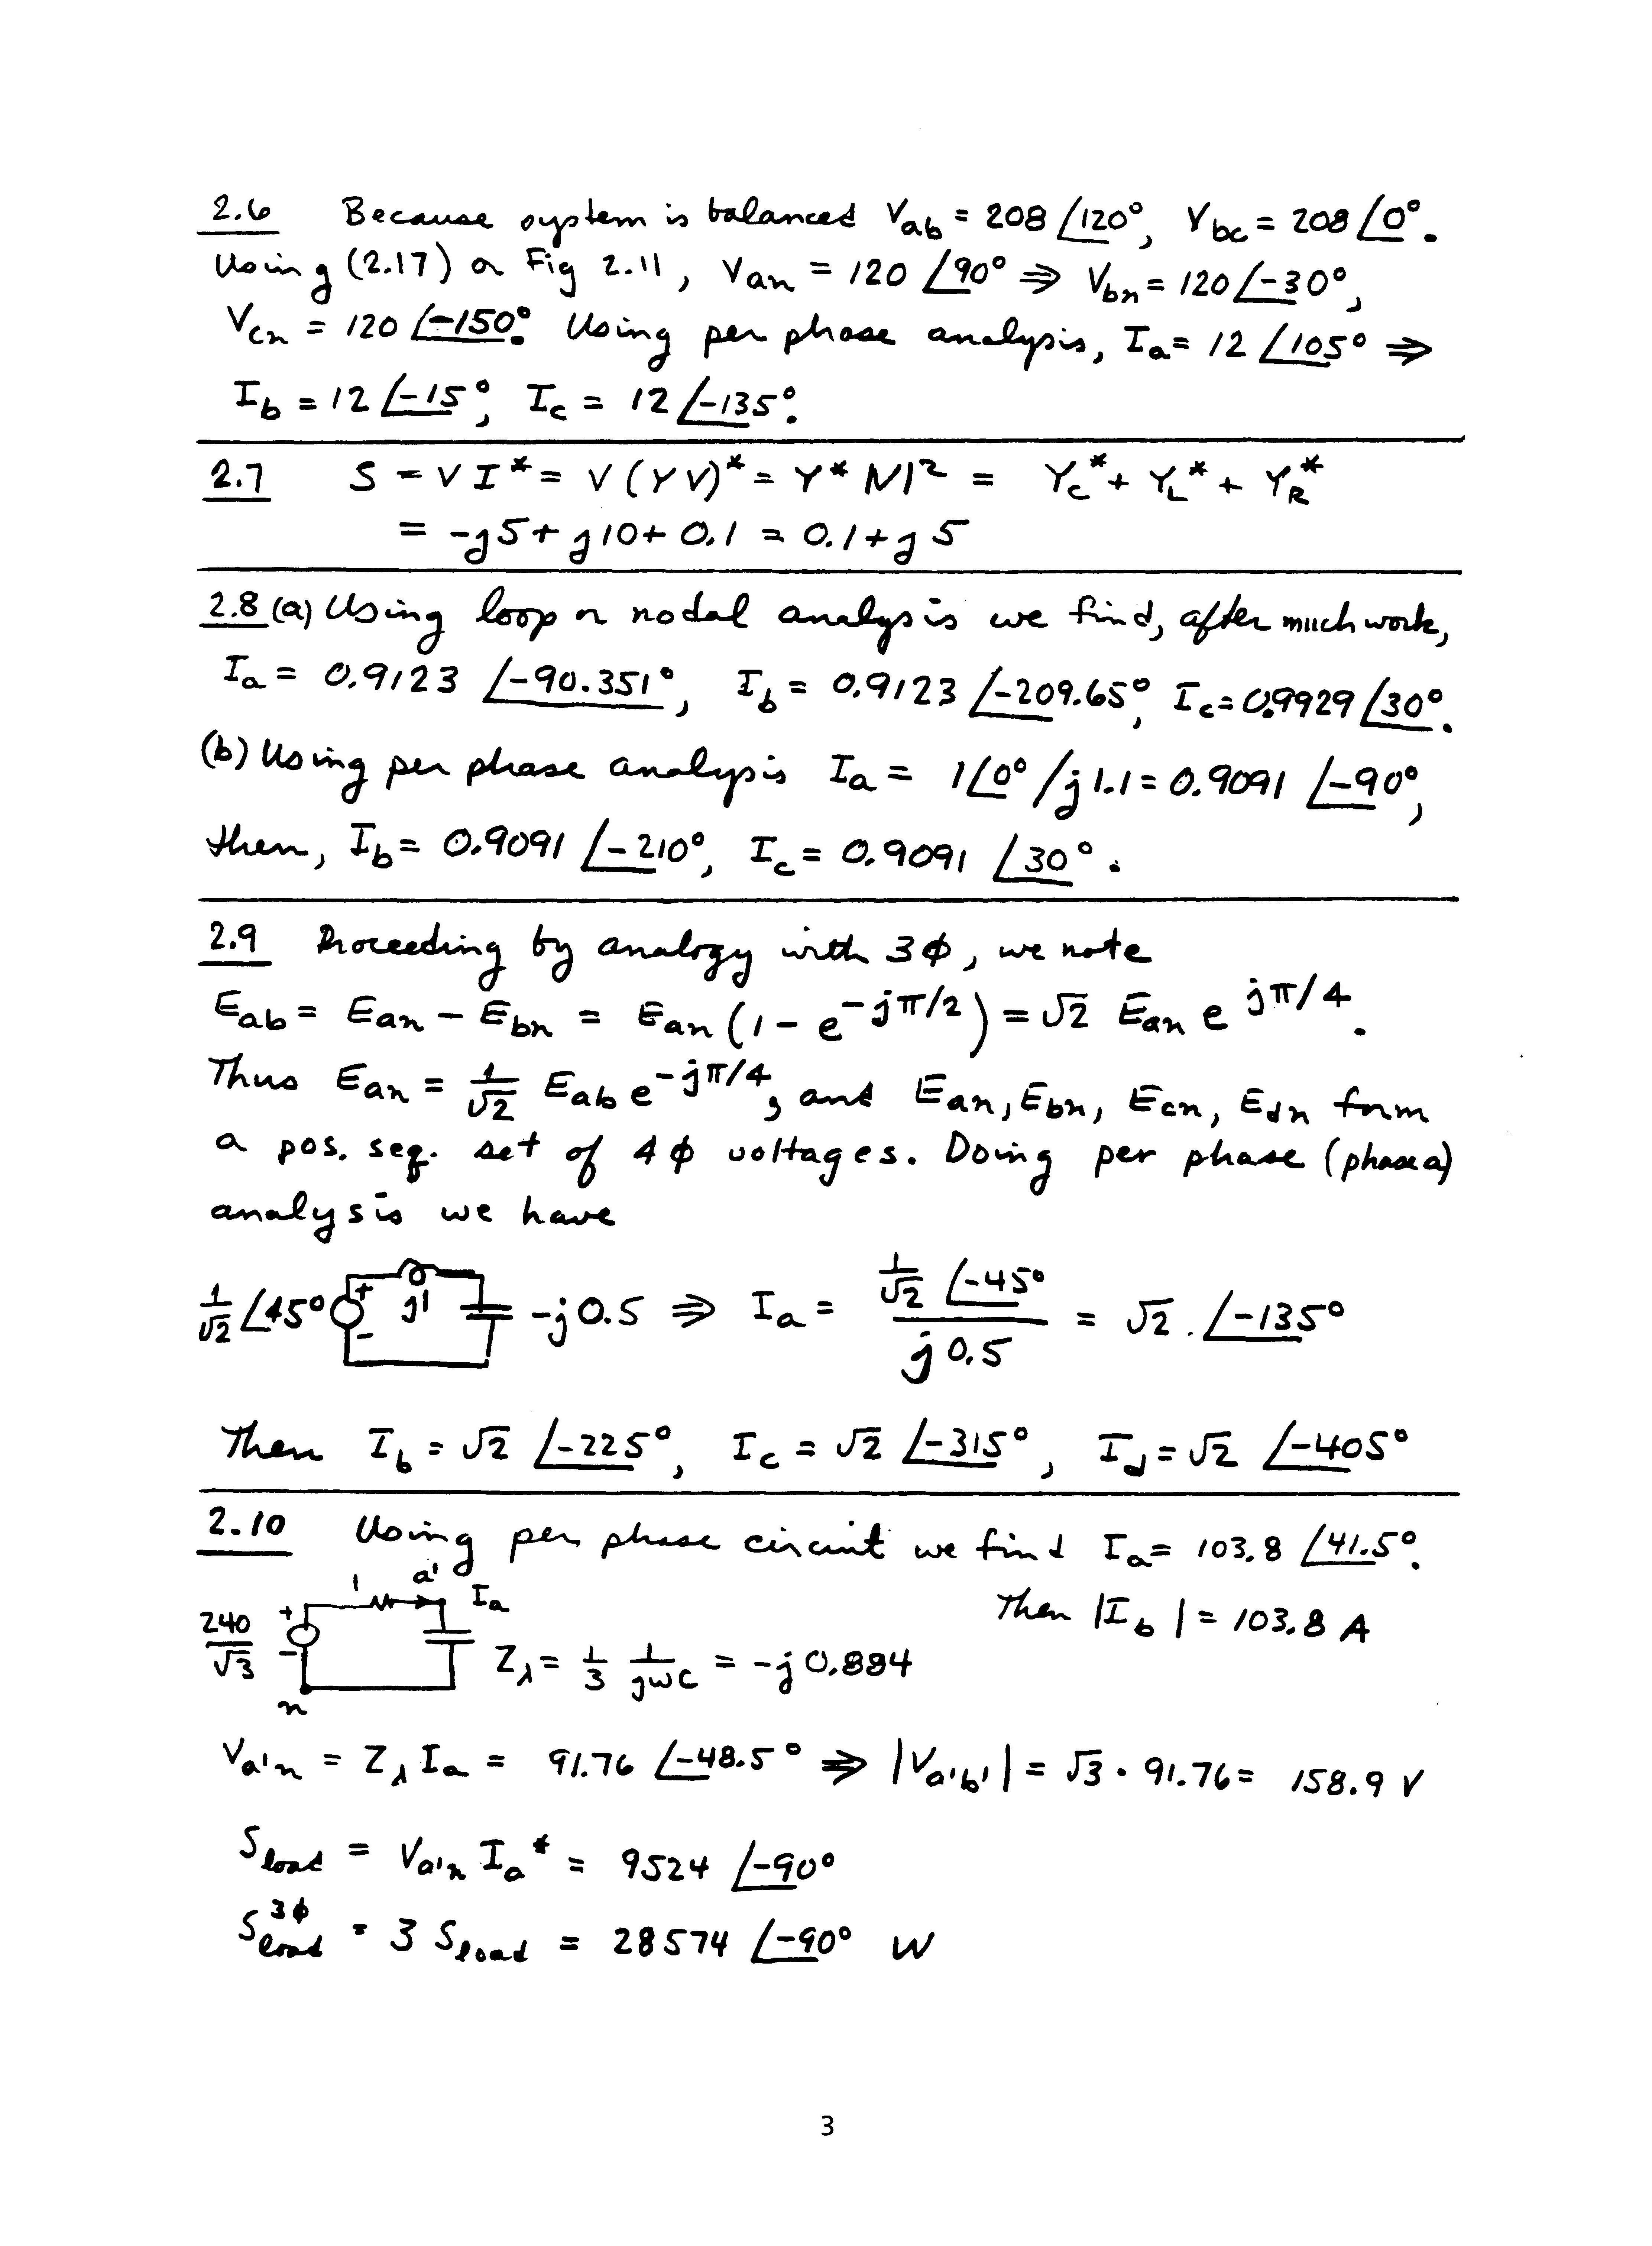 2.6 Because system is balanced Vab = 208 ∠120°, Vbc = 208 ∠0°.
Using (2.17) or Fig 2.11, Van = 120 ∠90° ⇒ Vbn = 120 ∠-30°,
Vcn = 120 ∠-150°. Using per phase analysis, Ia = 12 ∠105° ⇒
Ib = 12 ∠-15°, Ic = 12 ∠-135°.
2.7 S = V I* = V (YV)* = Y* |V|² = Yc* + YL* + YR*
= -j5 + j10 + 0.1 = 0.1 + j5
2.8 (a) Using loop or nodal analysis we find, after much work,
Ia = 0.9123 ∠-90.351°, Ib = 0.9123 ∠-209.65°, Ic = 0.9929 ∠30°.
(b) Using per phase analysis Ia = 1∠0° / j1.1 = 0.9091 ∠-90°,
then, Ib = 0.9091 ∠-210°, Ic = 0.9091 ∠30°.
2.9 Proceeding by analogy with 3ϕ, we note
Eab = Ean - Ebn = Ean (1 - e^-jπ/2) = √2 Ean e^jπ/4.
Thus Ean = 1/√2 Eab e^-jπ/4, and Ean, Ebn, Ecn, Edn form
a pos. seq. set of 4ϕ voltages. Doing per phase (phase a)
analysis we have
1/√2 ∠45° + - j1 -j0.5 ⇒ Ia = 1/√2 ∠-45° / j0.5 = √2 ∠-135°
Then Ib = √2 ∠-225°, Ic = √2 ∠-315°, Id = √2 ∠-405°
2.10 Using per phase circuit we find Ia = 103.8 ∠41.5°.
1 a' Ia
Then |Ib| = 103.8 A
240/√3 + - n Zλ = 1/3 1/jωC = -j0.884
Va'n = Zλ Ia = 91.76 ∠-48.5° ⇒ |Va'b'| = √3 · 91.76 = 158.9 V
Sload = Va'n Ia* = 9524 ∠-90°
S3ϕ load = 3 Sload = 28574 ∠-90° W
3